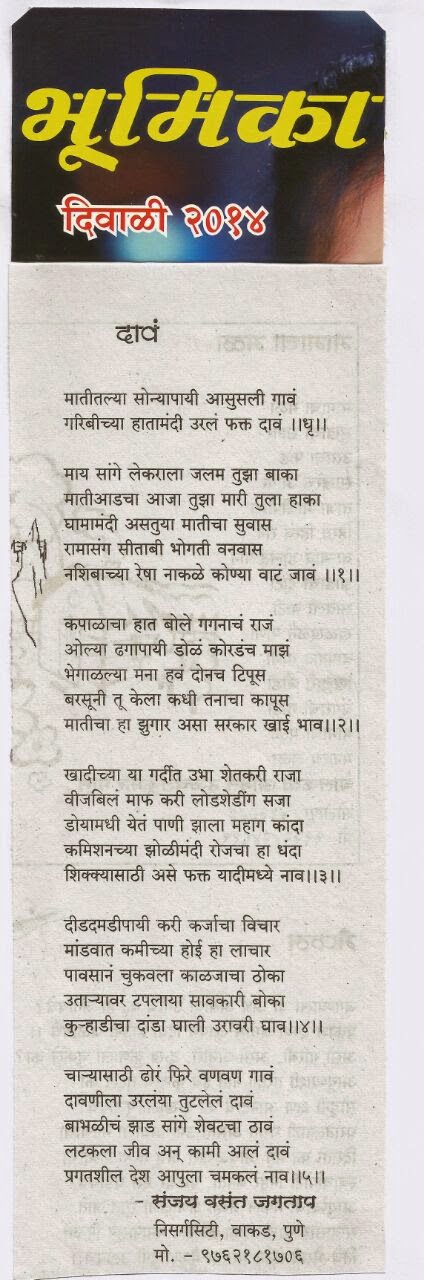 भूमिका
दिवाळी २०१४
दावं
मातीतल्या सोन्यापायी आसुसली गावं
गरिबीच्या हातामंदी उरलं फक्त दावं ।।धृ।।
माय सांगे लेकराला जलम तुझा बाका
मातीआडचा आजा तुझा मारी तुला हाका
घामामंदी असतुया मातीचा सुवास
रामासंग सीताबी भोगती वनवास
नशिबाच्या रेषा नाकळे कोण्या वाटं जावं ।।१।।
कपाळाचा हात बोले गगनाचं राजं
ओल्या ढगापायी डोळं कोरडंच माझं
भेगाळल्या मना हवं दोनच टिपूस
बरसूनी तू केला कधी तनाचा कापूस
मातीचा हा झुगार असा सरकार खाई भाव।।२।।
खादीच्या या गर्दीत उभा शेतकरी राजा
वीजबिलं माफ करी लोडशेडींग सजा
डोयामधी येतं पाणी झाला महाग कांदा
कमिशनच्या झोळीमंदी रोजचा हा धंदा
शिक्क्यासाठी असे फक्त यादीमध्ये नाव।।३।।
दीडदमडीपायी करी कर्जाचा विचार
मांडवात कमीच्या होई हा लाचार
पावसानं चुकवला काळजाचा ठोका
उताऱ्यावर टपलाया सावकारी बोका
कुऱ्हाडीचा दांडा घाली उरावरी घाव।।४।।
चाऱ्यासाठी ढोरं फिरे वणवण गावं
दावणीला उरलंया तुटलेलं दावं
बाभळीचं झाड सांगे शेवटचा ठावं
लटकला जीव अन् कामी आलं दावं
प्रगतशील देश आपुला चमकलं नाव।।५।।
- संजय वसंत जगताप
निसर्गसिटी, वाकड, पुणे
मो. - ९७६२१८१७०६